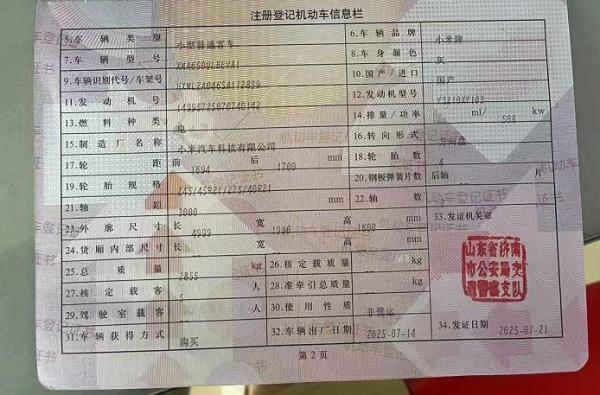 注册登记机动车信息栏
5.车辆类型 小型普通客车 6.车辆品牌 小米牌
7.车辆型号 XMA6500LBEVA1 8.车身颜色 灰
9.车辆识别代号/车架号 HXML2A046SA172839 10.国产/进口 国产
11.发动机号 1499572507074D142 12.发动机型号 YS210XY103
13.燃料种类 电 14.排量/功率 ml/ 508 kw
15.制造厂名称 小米汽车科技有限公司 16.转向形式 方向盘
17.轮距 前 1694 后 1700 mm 18.轮胎数 4
19.轮胎规格 245/45R21/275/40R21 20.钢板弹簧片数 后轴 片
21.轴距 3000 mm 22.轴数
23.外廓尺寸 长 4999 宽 1996 高 1600 mm 33.发证机关章
24.货厢内部尺寸 长 宽 高 mm
25.总质量 2855 kg 26.核定载质量 kg
27.核定载客 5 人 28.准牵引总质量 kg
29.驾驶室载客 人 30.使用性质 非营运
31.车辆获得方式 购买 32.车辆出厂日期 2025-07-14 34.发证日期 2025-07-21
山东省济南
市公安局交
通警察支队
第2页